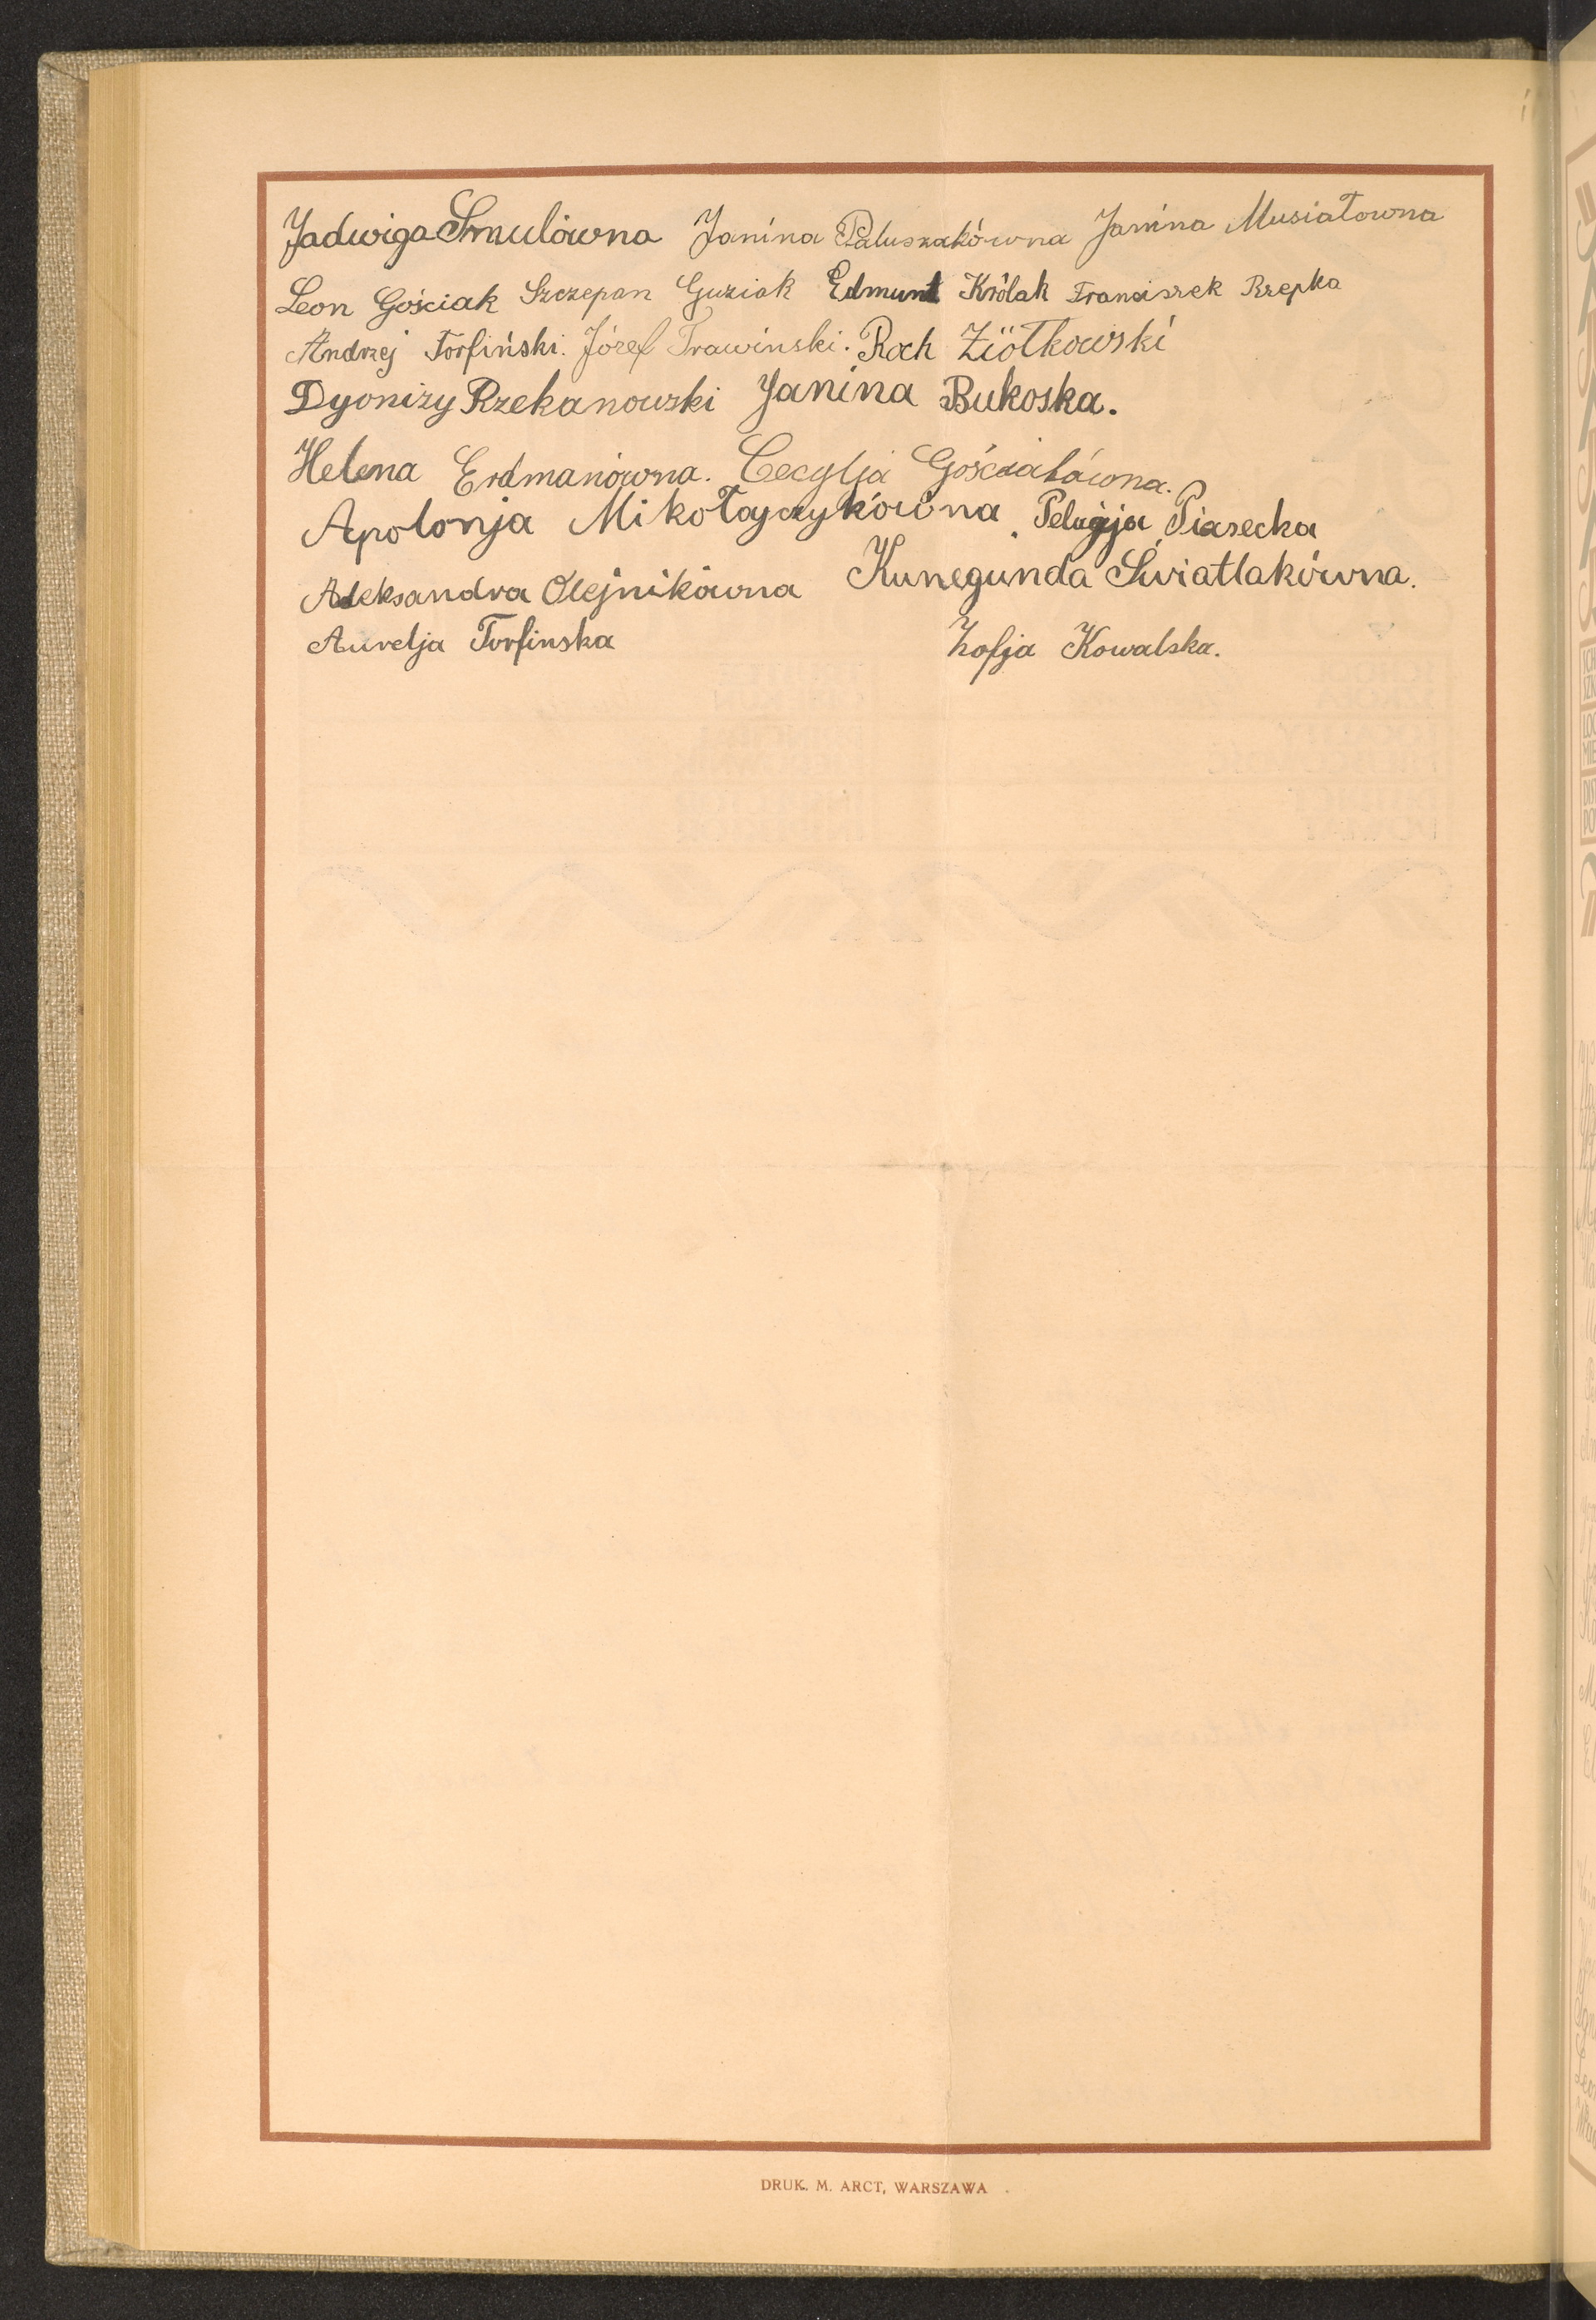 Jadwiga Smulówna Janina Paluszakówna Janina Musiałowna
Leon Gościak Szczepan Guziak Edmunt Królak Franciszek Rzepka
Andrzej Torfiński. Józef Trawinski. Roch Ziółkowski
Dyonizy Rzekanowski Janina Bukoska.
Helena Erdmanówna. Cecylja Gościakówna.
Apolonja Mikołajczykówna Pelagja Piasecka
Aleksandra Olejnikówna Kunegunda Światlakówna.
Aurelja Torfinska Zofja Kowalska.
DRUK. M. ARCT, WARSZAWA